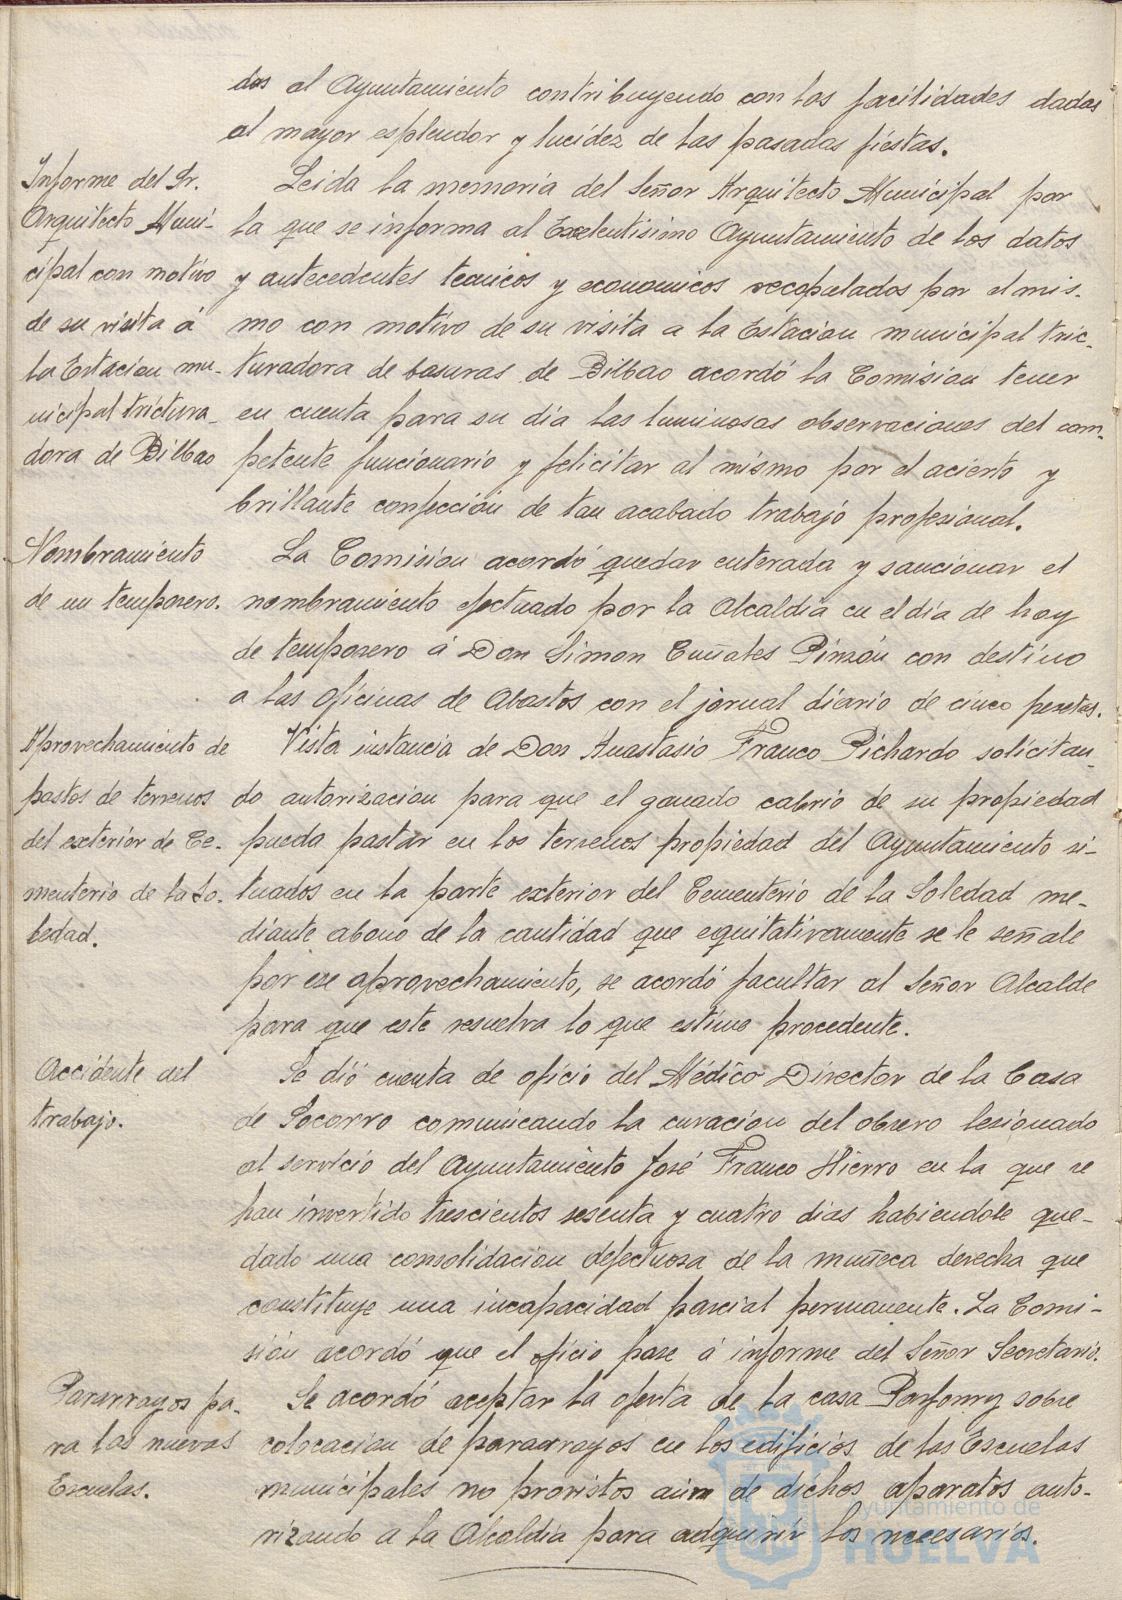 dos al Ayuntamiento contribuyendo con las facilidades dadas
al mayor esplendor y lucidez de las pasadas fiestas.
Informe del Sr.
Arquitecto Muni-
cipal con motivo
de su visita á
la Estacion mu-
nicipal tritura-
dora de Bilbao
Leida la memoria del Señor Arquitecto Municipal por
la que se informa al Excelentisimo Ayuntamiento de los datos
y antecedentes tecnicos y economicos recopulados por el mis-
mo con motivo de su visita a la Estacion municipal tric-
turadora de basuras de Bilbao acordó la Comision tener
en cuenta para su dia las luminosas observaciones del com-
petente funcionario y felicitar al mismo por el acierto y
brillante confección de tan acabado trabajó profesional.
Nombramiento
de un temporero.
La Comision acordó quedar enterada y sancionar el
nombramiento efectuado por la Alcaldia en el dia de hoy
de temporero á Don Simon Cuñates Pinzón con destino
a las Oficinas de Abastos con el jornal diario de cinco pesetas.
Aprovechamiento de
pastos de terrenos
del exterior de Ce-
menterio de la So-
ledad.
Vista instancia de Don Anastasio Franco Pichardo solicitan-
do autorizacion para que el ganado cabrio de su propiedad
pueda pastar en los terrenos propiedad del Ayuntamiento si-
tuados en la parte exterior del Cementerio de la Soledad me-
diante abono de la cantidad que equitativamente se le señale
por ese aprovechamiento, se acordó facultar al Señor Alcalde
para que este resuelva lo que estime procedente.
Accidente del
trabajo.
Se dió cuenta de oficio del Médico Director de la Casa
de Socorro comunicando la curacion del obrero lesionado
al servicio del Ayuntamiento José Franco Hierro en la que se
han invertido trescientos sesenta y cuatro dias habiendole que-
dado una consolidacion defectuosa de la muñeca derecha que
constituye una incapacidad parcial permanente. La Comi-
sión acordó que el oficio pase á informe del Señor Secretario.
Pararrayos pa-
ra las nuevas
Escuelas.
Se acordó aceptar la oferta de la casa Porfonry sobre
colocacion de pararrayos en los edificios de las Escuelas
municipales no provistos aun de dichos aparatos auto-
rizando a la Alcaldia para adquirir los necesarios.
Ayuntamiento de
HUELVA